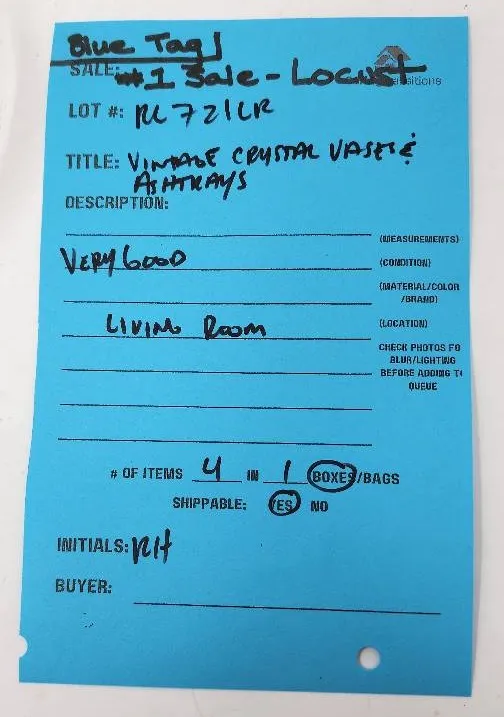 Blue Tag!
SALE: #1 Sale - Locust
LOT #: RL721LR
TITLE: VINTAGE CRYSTAL VASES &
ASHTRAYS
DESCRIPTION:
(MEASUREMENTS)
VERY GOOD (CONDITION)
(MATERIAL/COLOR
/BRAND)
LIVING ROOM (LOCATION)
CHECK PHOTOS FO
BLUR/LIGHTING
BEFORE ADDING T
QUEUE
# OF ITEMS 4 IN 1 BOXES/BAGS
SHIPPABLE: YES NO
INITIALS: RH
BUYER: